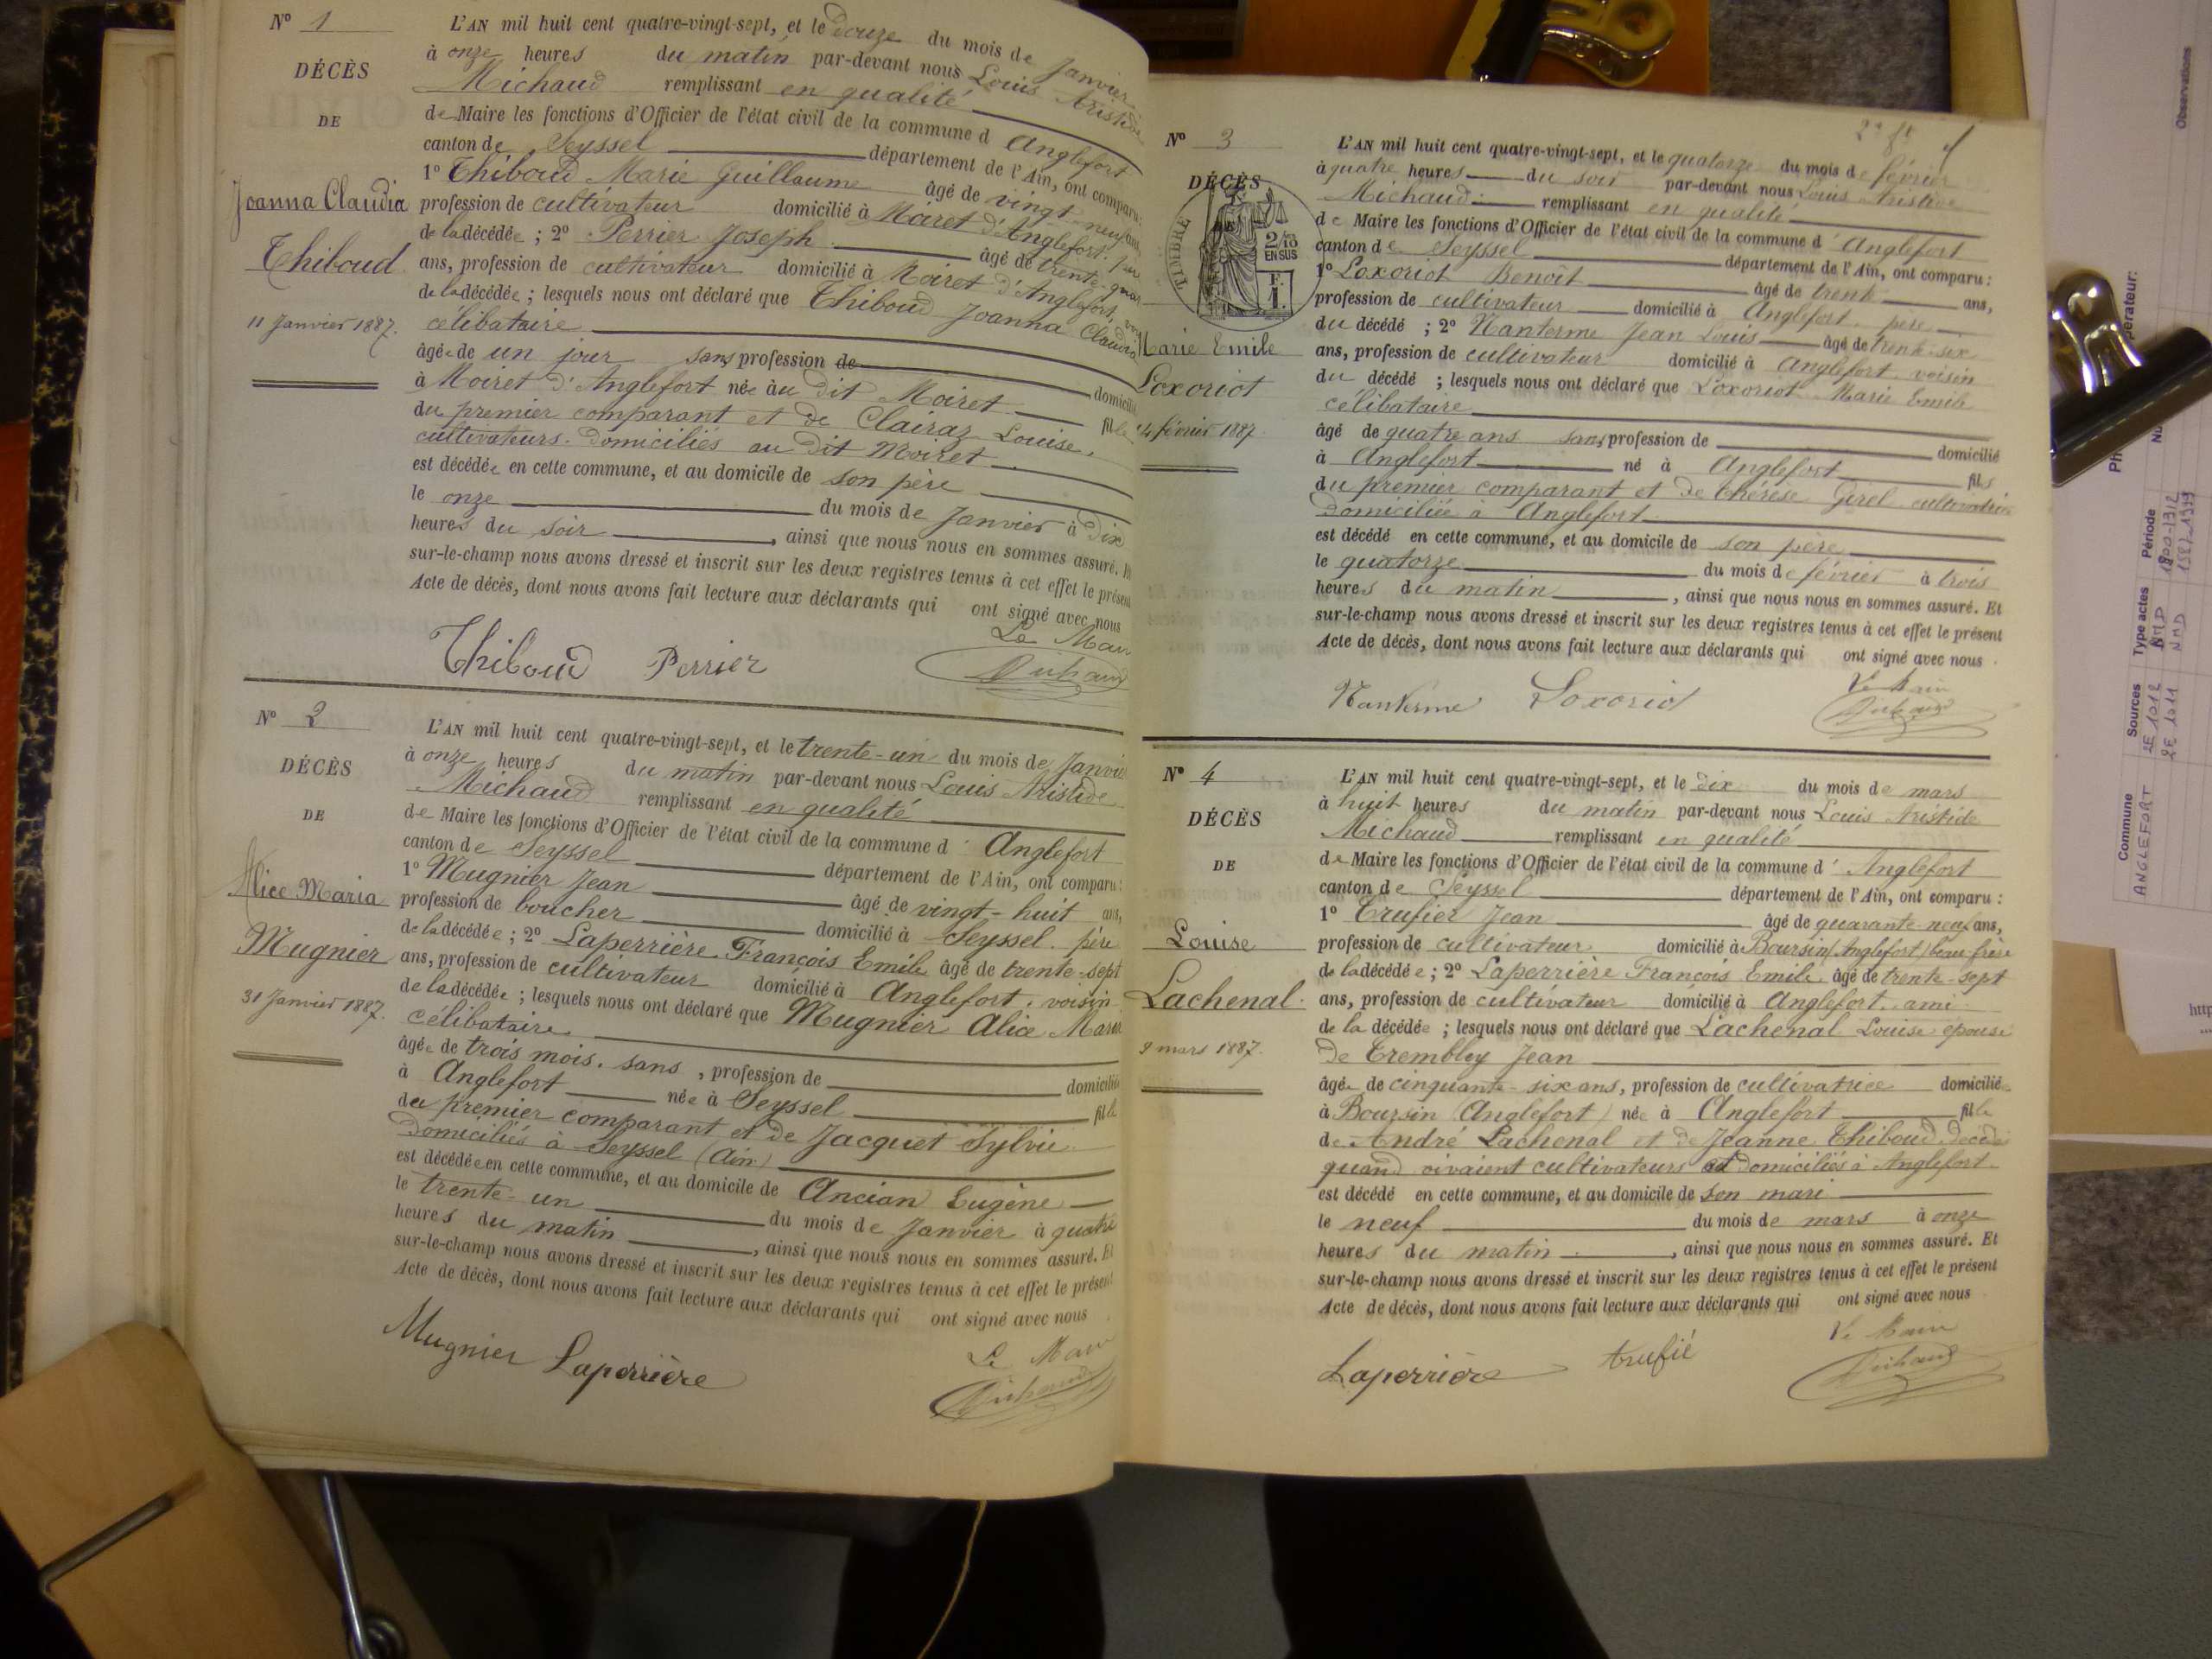 Nº 1
DÉCÈS
DE
Joanna Claudia
Thiboud
11 Janvier 1887.
L'AN mil huit cent quatre-vingt-sept, et le douze du mois de Janvier
à onze heures du matin par-devant nous Louis Aristide
Michaud remplissant en qualité
de Maire les fonctions d'Officier de l'état civil de la commune d Anglefort
canton de Seyssel département de l'Ain, ont comparu:
1º Thiboud Marie Guillaume âgé de vingt-neuf ans,
profession de cultivateur domicilié à Moiret d'Anglefort. père
de la décédée ; 2º Perrier Joseph âgé de trente-quatre
ans, profession de cultivateur domicilié à Moiret d'Anglefort,
de la décédée ; lesquels nous ont déclaré que Thiboud Joanna Claudia
célibataire
âgée de un jour sans profession de domicilié
à Moiret d'Anglefort née au dit Moiret fille
du premier comparant et de Clairaz Louise.
cultivateurs domiciliés au dit Moiret
est décédée en cette commune, et au domicile de son père
le onze du mois de Janvier à dix
heures du soir , ainsi que nous nous en sommes assuré. Et
sur-le-champ nous avons dressé et inscrit sur les deux registres tenus à cet effet le présent
Acte de décès, dont nous avons fait lecture aux déclarants qui ont signé avec nous
Le Maire
Thiboud Perrier Michaud
Nº 2
DÉCÈS
DE
Alice Maria
Mugnier
31 Janvier 1887.
L'AN mil huit cent quatre-vingt-sept, et le trente-un du mois de Janvier
à onze heures du matin par-devant nous Louis Aristide
Michaud remplissant en qualité
de Maire les fonctions d'Officier de l'état civil de la commune d' Anglefort
canton de Seyssel département de l'Ain, ont comparu:
1º Mugnier Jean âgé de vingt-huit ans,
profession de boucher domicilié à Seyssel. père
de la décédée ; 2º Laperrière François Emile âgé de trente-sept
ans, profession de cultivateur domicilié à Anglefort. voisin
de la décédée ; lesquels nous ont déclaré que Mugnier Alice Maria
célibataire
âgée de trois mois. sans , profession de domiciliée
à Anglefort née à Seyssel fille
du premier comparant et de Jacquet Sylvie
domiciliés à Seyssel (Ain)
est décédée en cette commune, et au domicile de Ancian Eugène
le trente-un du mois de Janvier à quatre
heures du matin , ainsi que nous nous en sommes assuré. Et
sur-le-champ nous avons dressé et inscrit sur les deux registres tenus à cet effet le présent
Acte de décès, dont nous avons fait lecture aux déclarants qui ont signé avec nous
Le Maire
Mugnier Laperrière Michaud
Nº 3
DÉCÈS
TIMBRE
2/10
EN SUS
F.
1.
Marie Emile
Loxoriot
14 février 1887.
L'AN mil huit cent quatre-vingt-sept, et le quatorze du mois de février
à quatre heures du soir par-devant nous Louis Aristide
Michaud remplissant en qualité
de Maire les fonctions d'Officier de l'état civil de la commune d' Anglefort
canton de Seyssel département de l'Ain, ont comparu:
1º Loxoriot Benoît âgé de trente ans,
profession de cultivateur domicilié à Anglefort. père
du décédé ; 2º Nanterme Jean Louis âgé de trente-six
ans, profession de cultivateur domicilié à Anglefort. voisin
du décédé ; lesquels nous ont déclaré que Loxoriot Marie Emile
célibataire
âgé de quatre ans sans profession de domicilié
à Anglefort né à Anglefort fils
du premier comparant et de Thérèse Girel cultivatrice
domiciliée à Anglefort
est décédé en cette commune, et au domicile de son père
le quatorze du mois de février à trois
heures du matin , ainsi que nous nous en sommes assuré. Et
sur-le-champ nous avons dressé et inscrit sur les deux registres tenus à cet effet le présent
Acte de décès, dont nous avons fait lecture aux déclarants qui ont signé avec nous
Le Maire
Nanterme Loxoriot Michaud
Nº 4
DÉCÈS
DE
Louise
Lachenal
9 mars 1887.
L'AN mil huit cent quatre-vingt-sept, et le dix du mois de mars
à huit heures du matin par-devant nous Louis Aristide
Michaud remplissant en qualité
de Maire les fonctions d'Officier de l'état civil de la commune d' Anglefort
canton de Seyssel département de l'Ain, ont comparu :
1º Trufier Jean âgé de quarante-neuf ans,
profession de cultivateur domicilié à Boursin (Anglefort) beau-frère
de la décédée ; 2º Laperrière François Emile âgé de trente-sept
ans, profession de cultivateur domicilié à Anglefort. ami
de la décédée ; lesquels nous ont déclaré que Lachenal Louise épouse
de Trembley Jean
âgée de cinquante-six ans, profession de cultivatrice domiciliée
à Boursin (Anglefort) née à Anglefort fille
de André Lachenal et de Jeanne Thiboud
quand vivaient cultivateurs et domiciliés à Anglefort
est décédé en cette commune, et au domicile de son mari
le neuf du mois de mars à onze
heures du matin , ainsi que nous nous en sommes assuré. Et
sur-le-champ nous avons dressé et inscrit sur les deux registres tenus à cet effet le présent
Acte de décès, dont nous avons fait lecture aux déclarants qui ont signé avec nous
Le Maire
Laperrière trufié Michaud
Observations
Commune Sources Type actes Période
ANGLEFORT 2E 1012 NMD
2E 1011 NMD